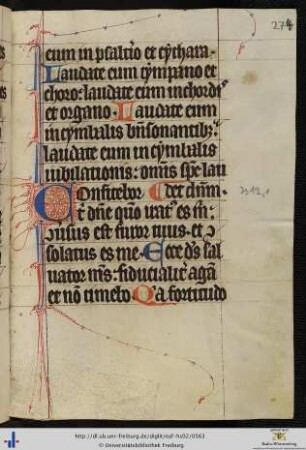 274
eum in psalterio et cythara.
Laudate eum tympano et
choro: laudate eum in chordis
et organo. Laudate eum
in cymbalis benesonantibus:
laudate eum in cymbalis
iubilationis: omnis spc lau
Confitebor Det dnm.
t dne qm irat es m:
uersus est furor tuus. et con
solatus es me. Ecce ds sal
uator ms: fiducialit aga
et no timebo. Qa fortitudo
http://dl.ub.uni-freiburg.de/diglit/auf-hs02/0563
© Universitätsbibliothek Freiburg